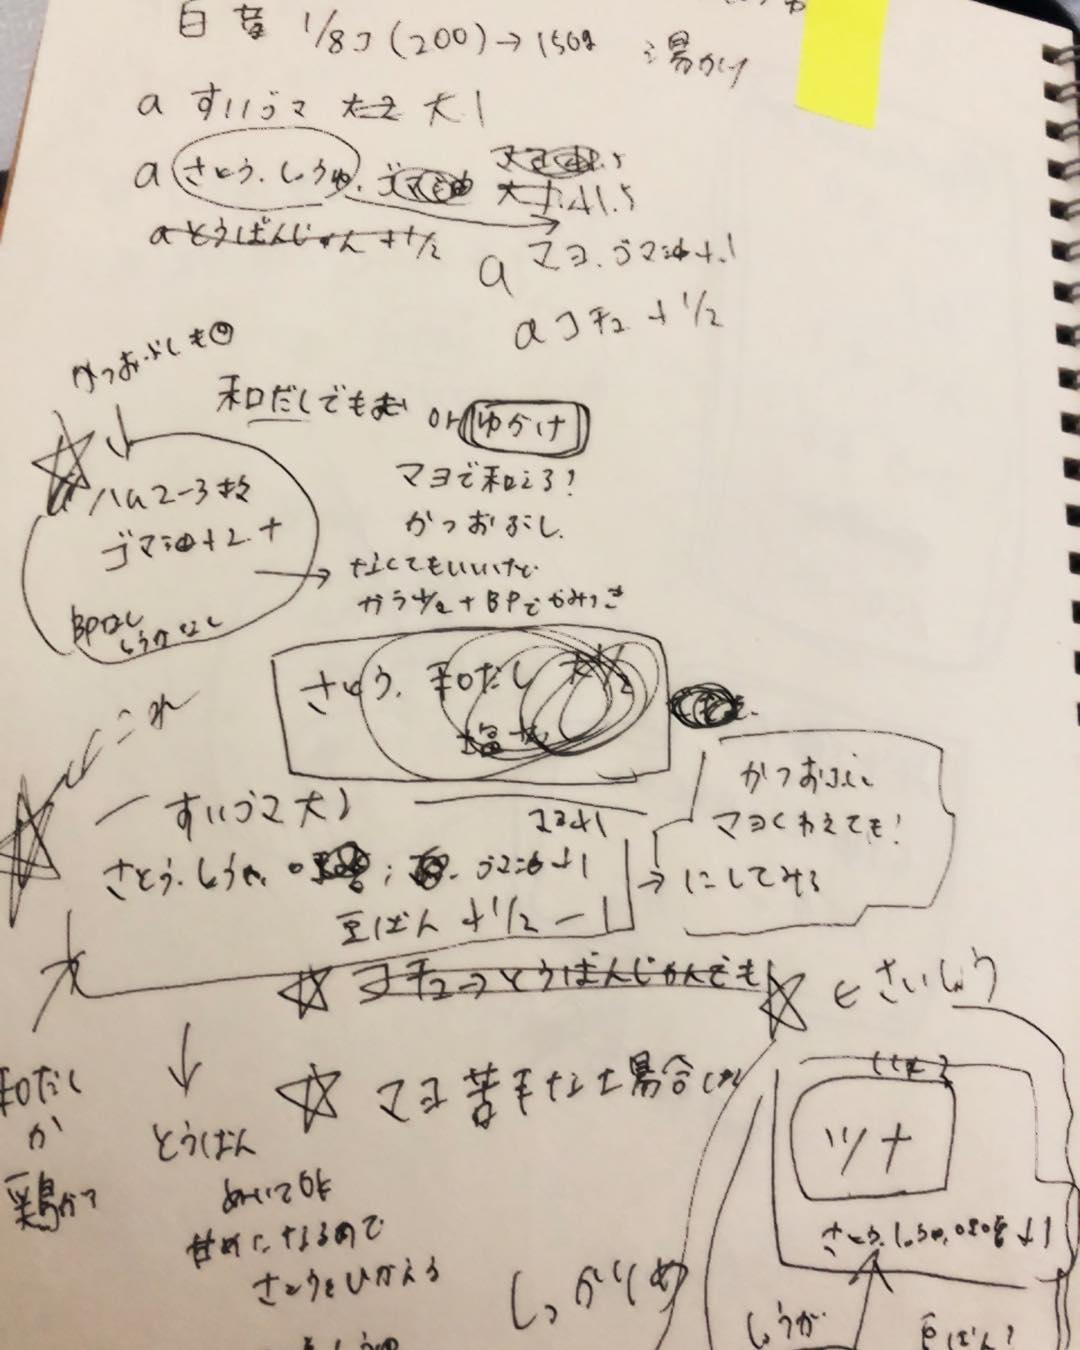 白菜 1/8コ(200)→150g 湯かけ
a すりゴマ 大2 大1
a さとう、しょうゆ、ゴマ油
a とうばんじゃん 小1/2
a マヨ、ゴマ油小1
a コチュ 小1/2
かつおぶしも◎
和だしでも or ゆかけ
マヨで和える?
ハム2-3枚
かつおぶし
ゴマ油小2
なくてもいいけど
ガラ少々+BPで
BPなし
しょうゆなし
さとう、和だし 大1/2
これ
かつおぶし
すりゴマ大1
マヨ小1
マヨくわえても!
さとう、しょうゆ ゴマ油小1
→にしてみる
豆ばん 小1/2-1
コチュ→とうばんじゃんでも
←さいしょう
マヨ苦手な場合は
和だし
か
鶏がら
とうばん
ぬいてOK
甘めになるので
さとうをひかえる
ツナ
さとう、しょうゆ、 小1
しっかりめ
しょうが
豆ばん?